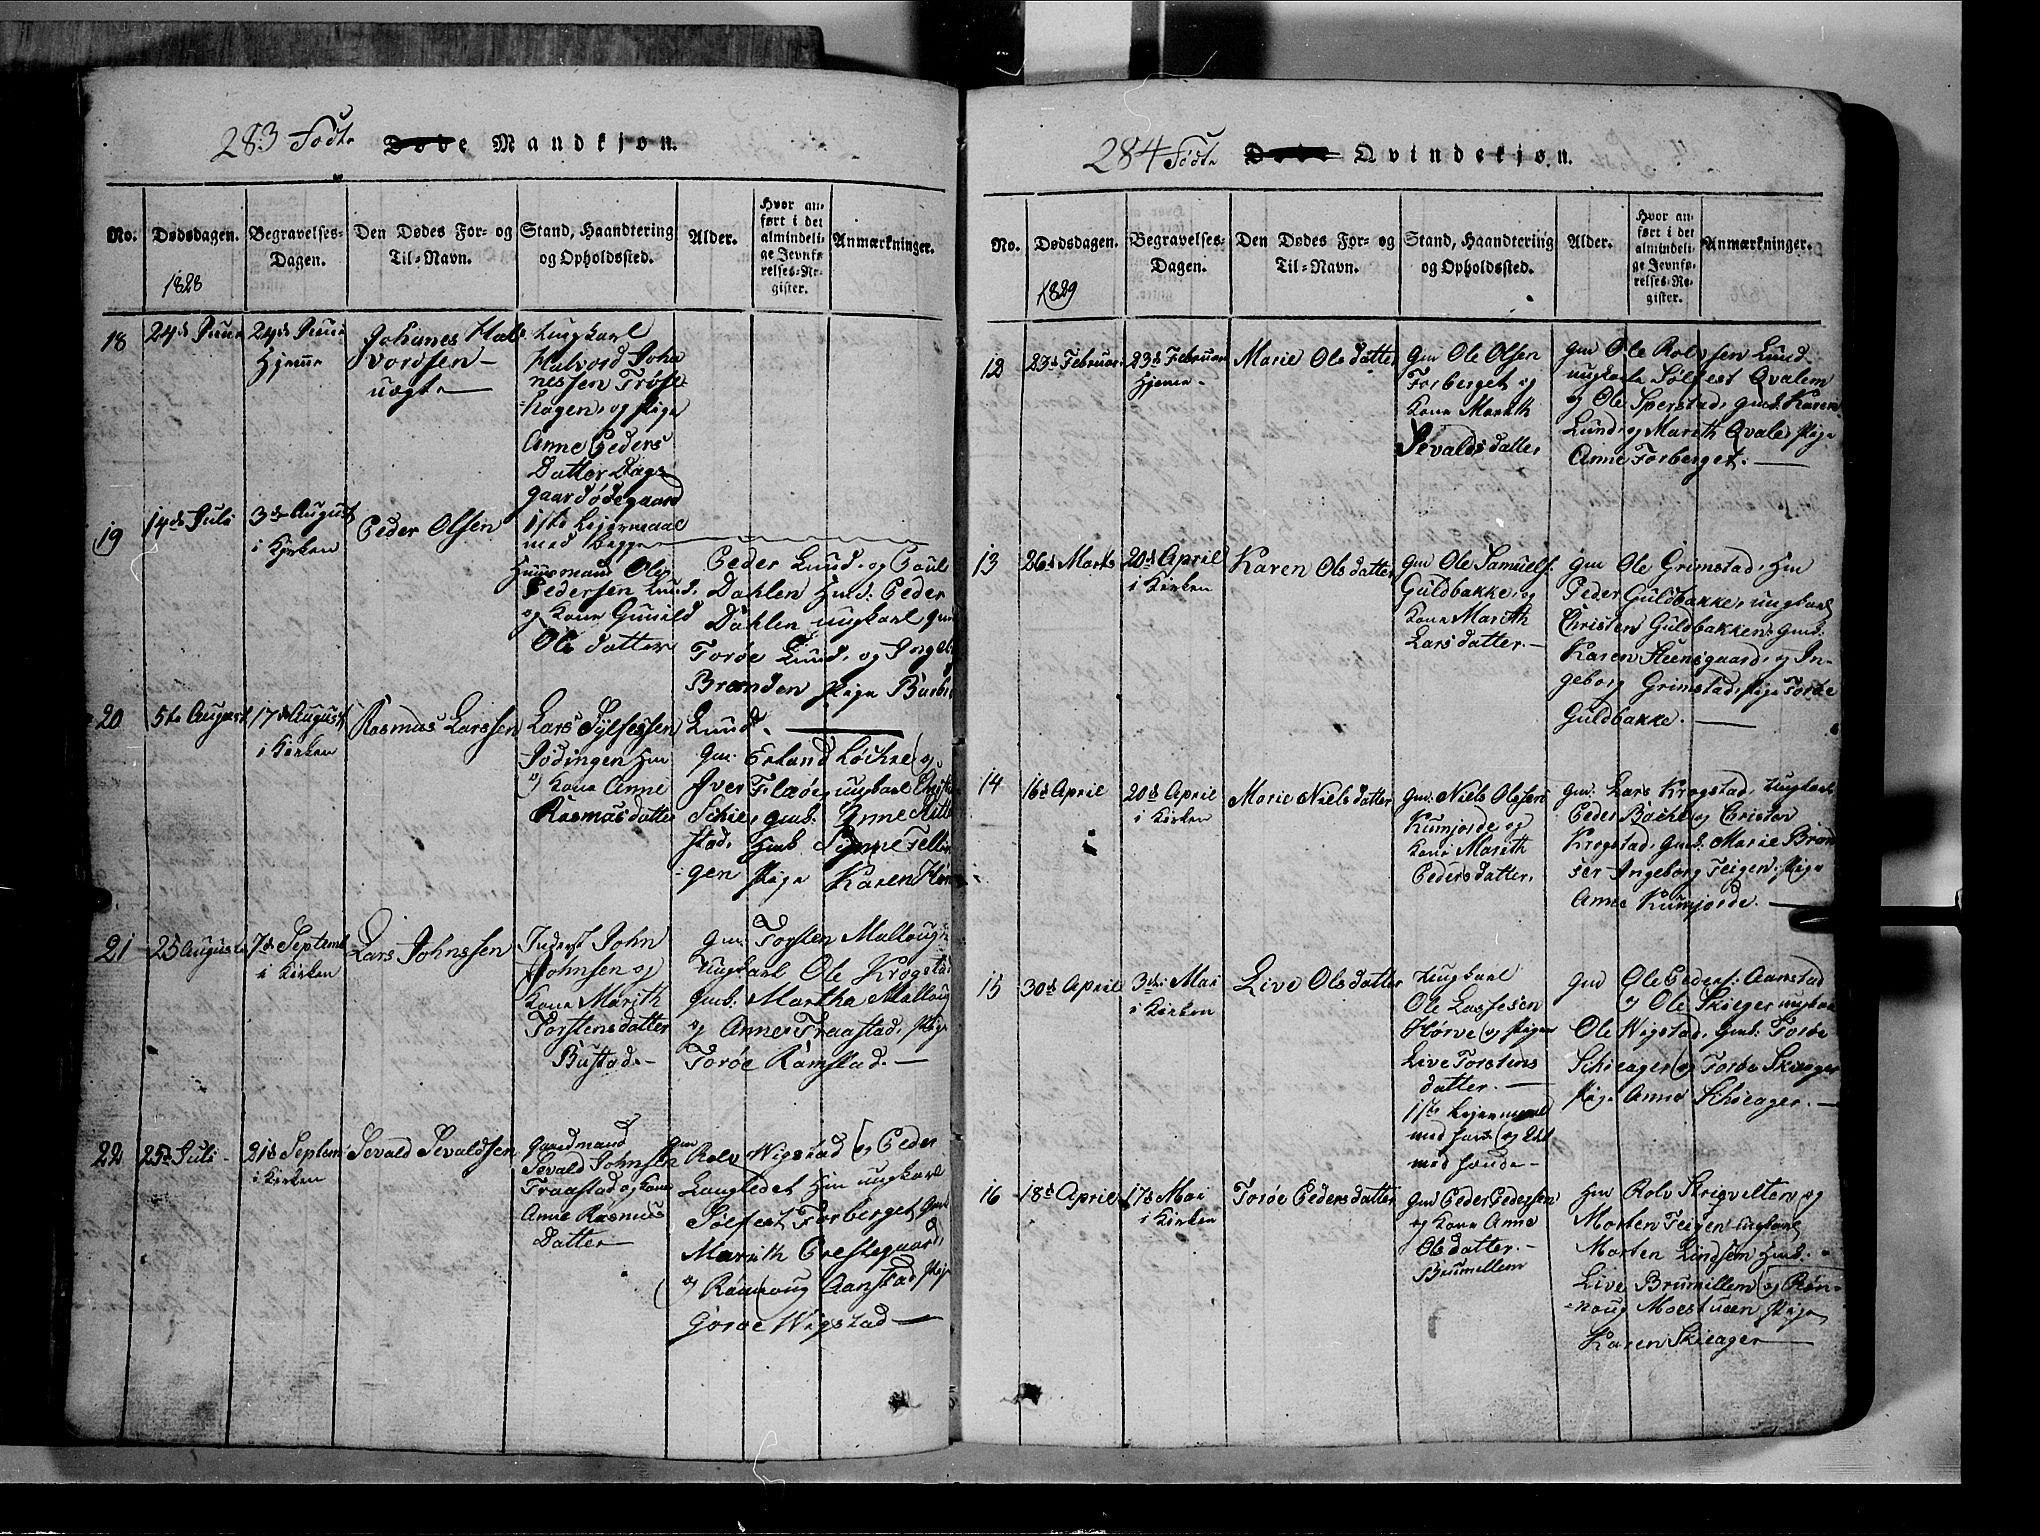 283 Fødte Døde Mandkjøn.
No.
Dødsdagen.
1828
Begravelses-
Dagen.
Den Dødes For- og
Til-Navn.
Stand, Haandtering
og Opholdssted.
Alder.
Hvor an-
ført i det
almindeli-
ge Jevnfø-
relses-Re-
gister.
Anmærkninger.
18
24de Juni
24de Juni
Hjemme
Johanes Hal-
vordsen
uægte
Ungkarl
Halvord Joha
nessen Trøse-
hagen, og Pige
Anne Peders
Datter
gaardødegaard
1ste Lejermaal
med begge
19
14de Juli
3die August
i Kirken
Peder Olsen
Huusmand Ole
Pedersen Lund,
og Kone Gunild
Ols datter
Peder Lund, og Poul
Dahlen Hmd: Peder
Dahlen ungkarl
Torøe Lund, og Ingeb
Brænden Pige Barbr
Lund.
20
5te August
17de August
i Kirken
Rasmus Larssen
Lars Sylfessen
Jødingen Hm
og Kone Anne
Rasmusdatter
Gm: Erland Løchre og
Iver Flaøe, ungkarl
Schie, gmb: Anne
stad, Hmb
gen Pige Karen
21
25 August
7de Septemb
i Kirken
Lars Johnssen
Inderst John
Johnsen og
Kone Marith
Torstensdatter
Bustad
Gm: Torsten Malloug
Ungkarl Ole Krogstad
gmb: Martha Malloug
og Anne Fraastad, Pige
Torøe Ramstad.
22
25de Juli
21de Septem
i Kirken
Sevald Sevaldsen
Gaardmand
Sevald Johnsen
Fraastad og Kone
Anne Rasmus
Datter
Gm Rolv Wigstad og Peder
Laugledet Hm ungkarl
Sølfest Forberget Gmb
Marith Prestegaard,
og Rønnoug Aanstad Pige
Gorøe Wigstad
284 Fødte Døde Qvindekjøn.
No.
Dødsdagen.
1829
Begravelses-
Dagen.
Den Dødes For- og
Til-Navn.
Stand, Haandtering
og Opholdssted.
Alder.
Hvor an-
ført i det
almindeli-
ge Jevnfø-
relses-Re-
gister.
Anmærkninger.
12
23de Februar
23de Februar
Hjeme
Marie Olsdatter
Gm Ole Olsen
Forberget og
Kone Marith
Sevaldsdatter
Gm Ole Rolvsen Lund
ungkarle Sølfest Qvalem
og Ole Sperstad, gmb. Karen
Lund og Marith Qvale, Pige
Anne Forberget.
13
26de Marts
20de April
i Kirken
Karen Olsdatter
Gm Ole Samuels.
Guldbakke, og
Kone Marith
Larsdatter.
Gm Ole Grimstad, Hm
Peder Guldbakke, ungkarl
Christen Guldbakken: Gmb.
Karen Steensgaard, og In-
geborg Grimstad, Pige Torøe
Guldbakke.
14
16de April
20de April
i Kirken
Marie Nielsdatter
Gm. Niels Olssen
Kumjorde og
Kone Marith
Pedersdatter,
Gm. Lars Krogstad, Ungkarl
Peder Bache og Cristen
Krogstad, Gmb. Marie Bræn
ser Ingeborg Teigen, Pige
Anne Kumjorde.
15
30de April
3die Mai
i Kirken
Live Olsdatter
Ungkarl
Ole Lasfesen
Hørve og Pigen
Live Torstens
datter.
1ste Lejermaal
med ham og 2det
med hende
Gm Ole Peders: Aamstad
og Ole Skieger ungkarl
Ole Wigstad, Gmb. Torøe
Schieager og Torbe Skieager
Pige Anne Schieager.
16
18de April
17de Mai
i Kirken
Torøe Pedersdatter
Gm Peder Pedersen
og Kone Anne
Olsdatter.
Brumillem
Hm Rolv Skrigvelten og
Morten Teigen ungkarl
Morten Lindsem Hmb.
Live Brumillem og Røn-
noug Moestuen Pige
Karen Skieager